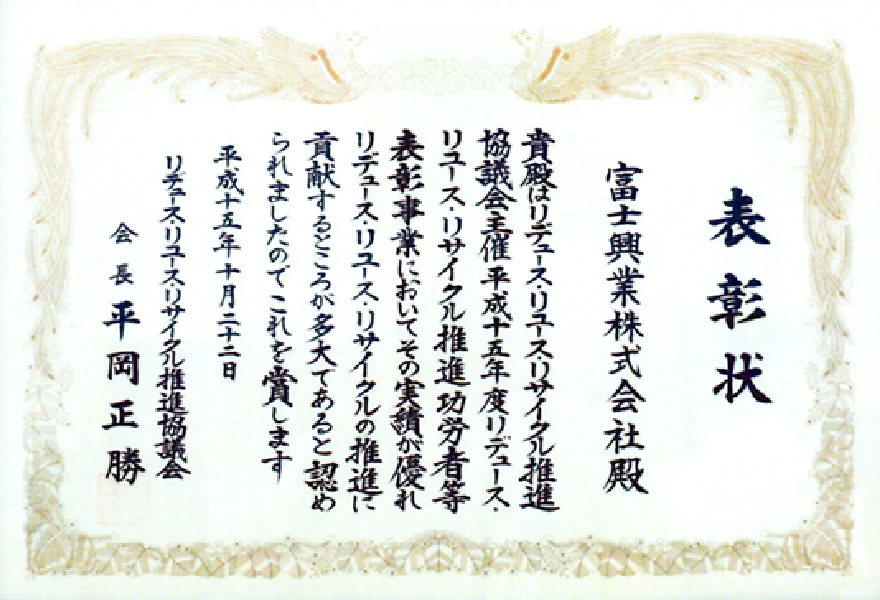 表彰状
富士興業株式会社殿
貴殿はリデュース・リユース・リサイクル推進
協議会主催平成十五年度リデュース・
リユース・リサイクル推進功労者等
表彰事業においてその実績が優れ
リデュース・リユース・リサイクルの推進に
貢献するところが多大であると認め
られましたのでこれを賞します
平成十五年十月二十二日
リデュース・リユース・リサイクル推進協議会
会長 平岡正勝